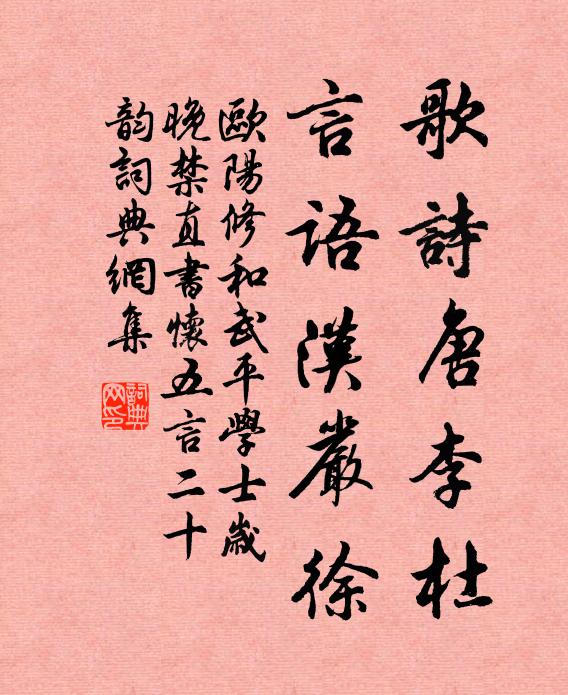 歌詩唐李杜
言語漢嚴徐
歐陽修和武平學士歲
晚禁直書懷五言二十
韵詞典網集
詞典網印